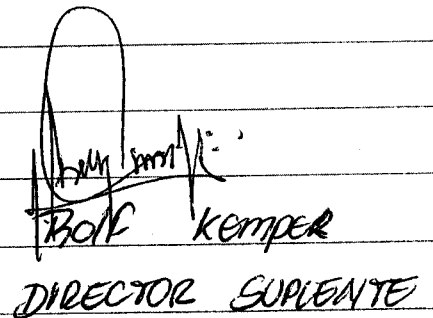 Rolf Kemper
DIRECTOR SUPLENTE